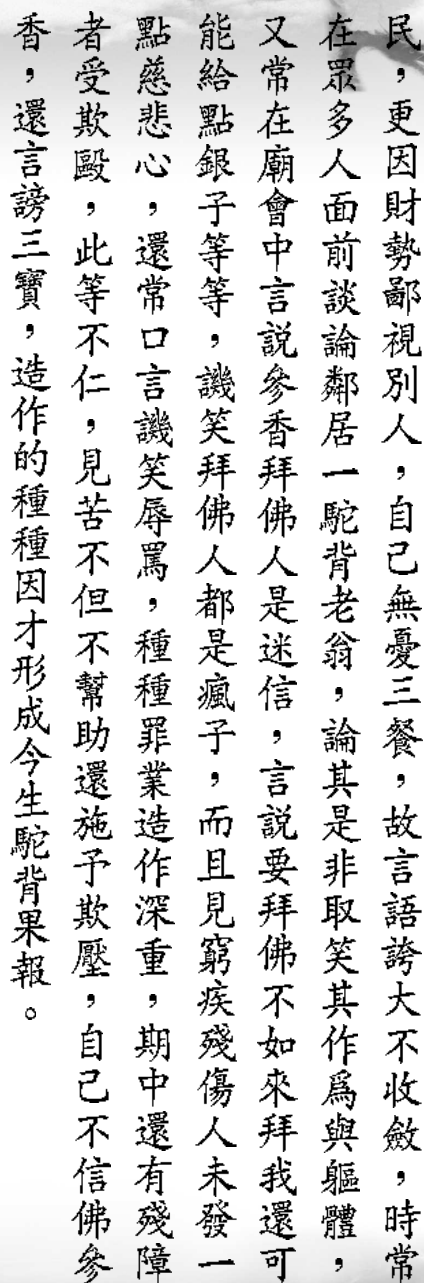 民，更因財勢鄙視別人，自己無憂三餐，故言語誇大不收斂，時常
在眾多人面前談論鄰居一駝背老翁，論其是非取笑其作為與軀體，
又常在廟會中言說參香拜佛人是迷信，言說要拜佛不如來拜我還可
能給點銀子等等，譏笑拜佛人都是瘋子，而且見窮疾殘傷人未發一
點慈悲心，還常口言譏笑辱罵，種種罪業造作深重，期中還有殘障
者受欺毆，此等不仁，見苦不但不幫助還施予欺壓，自己不信佛參
香，還言謗三寶，造作的種種因才形成今生駝背果報。